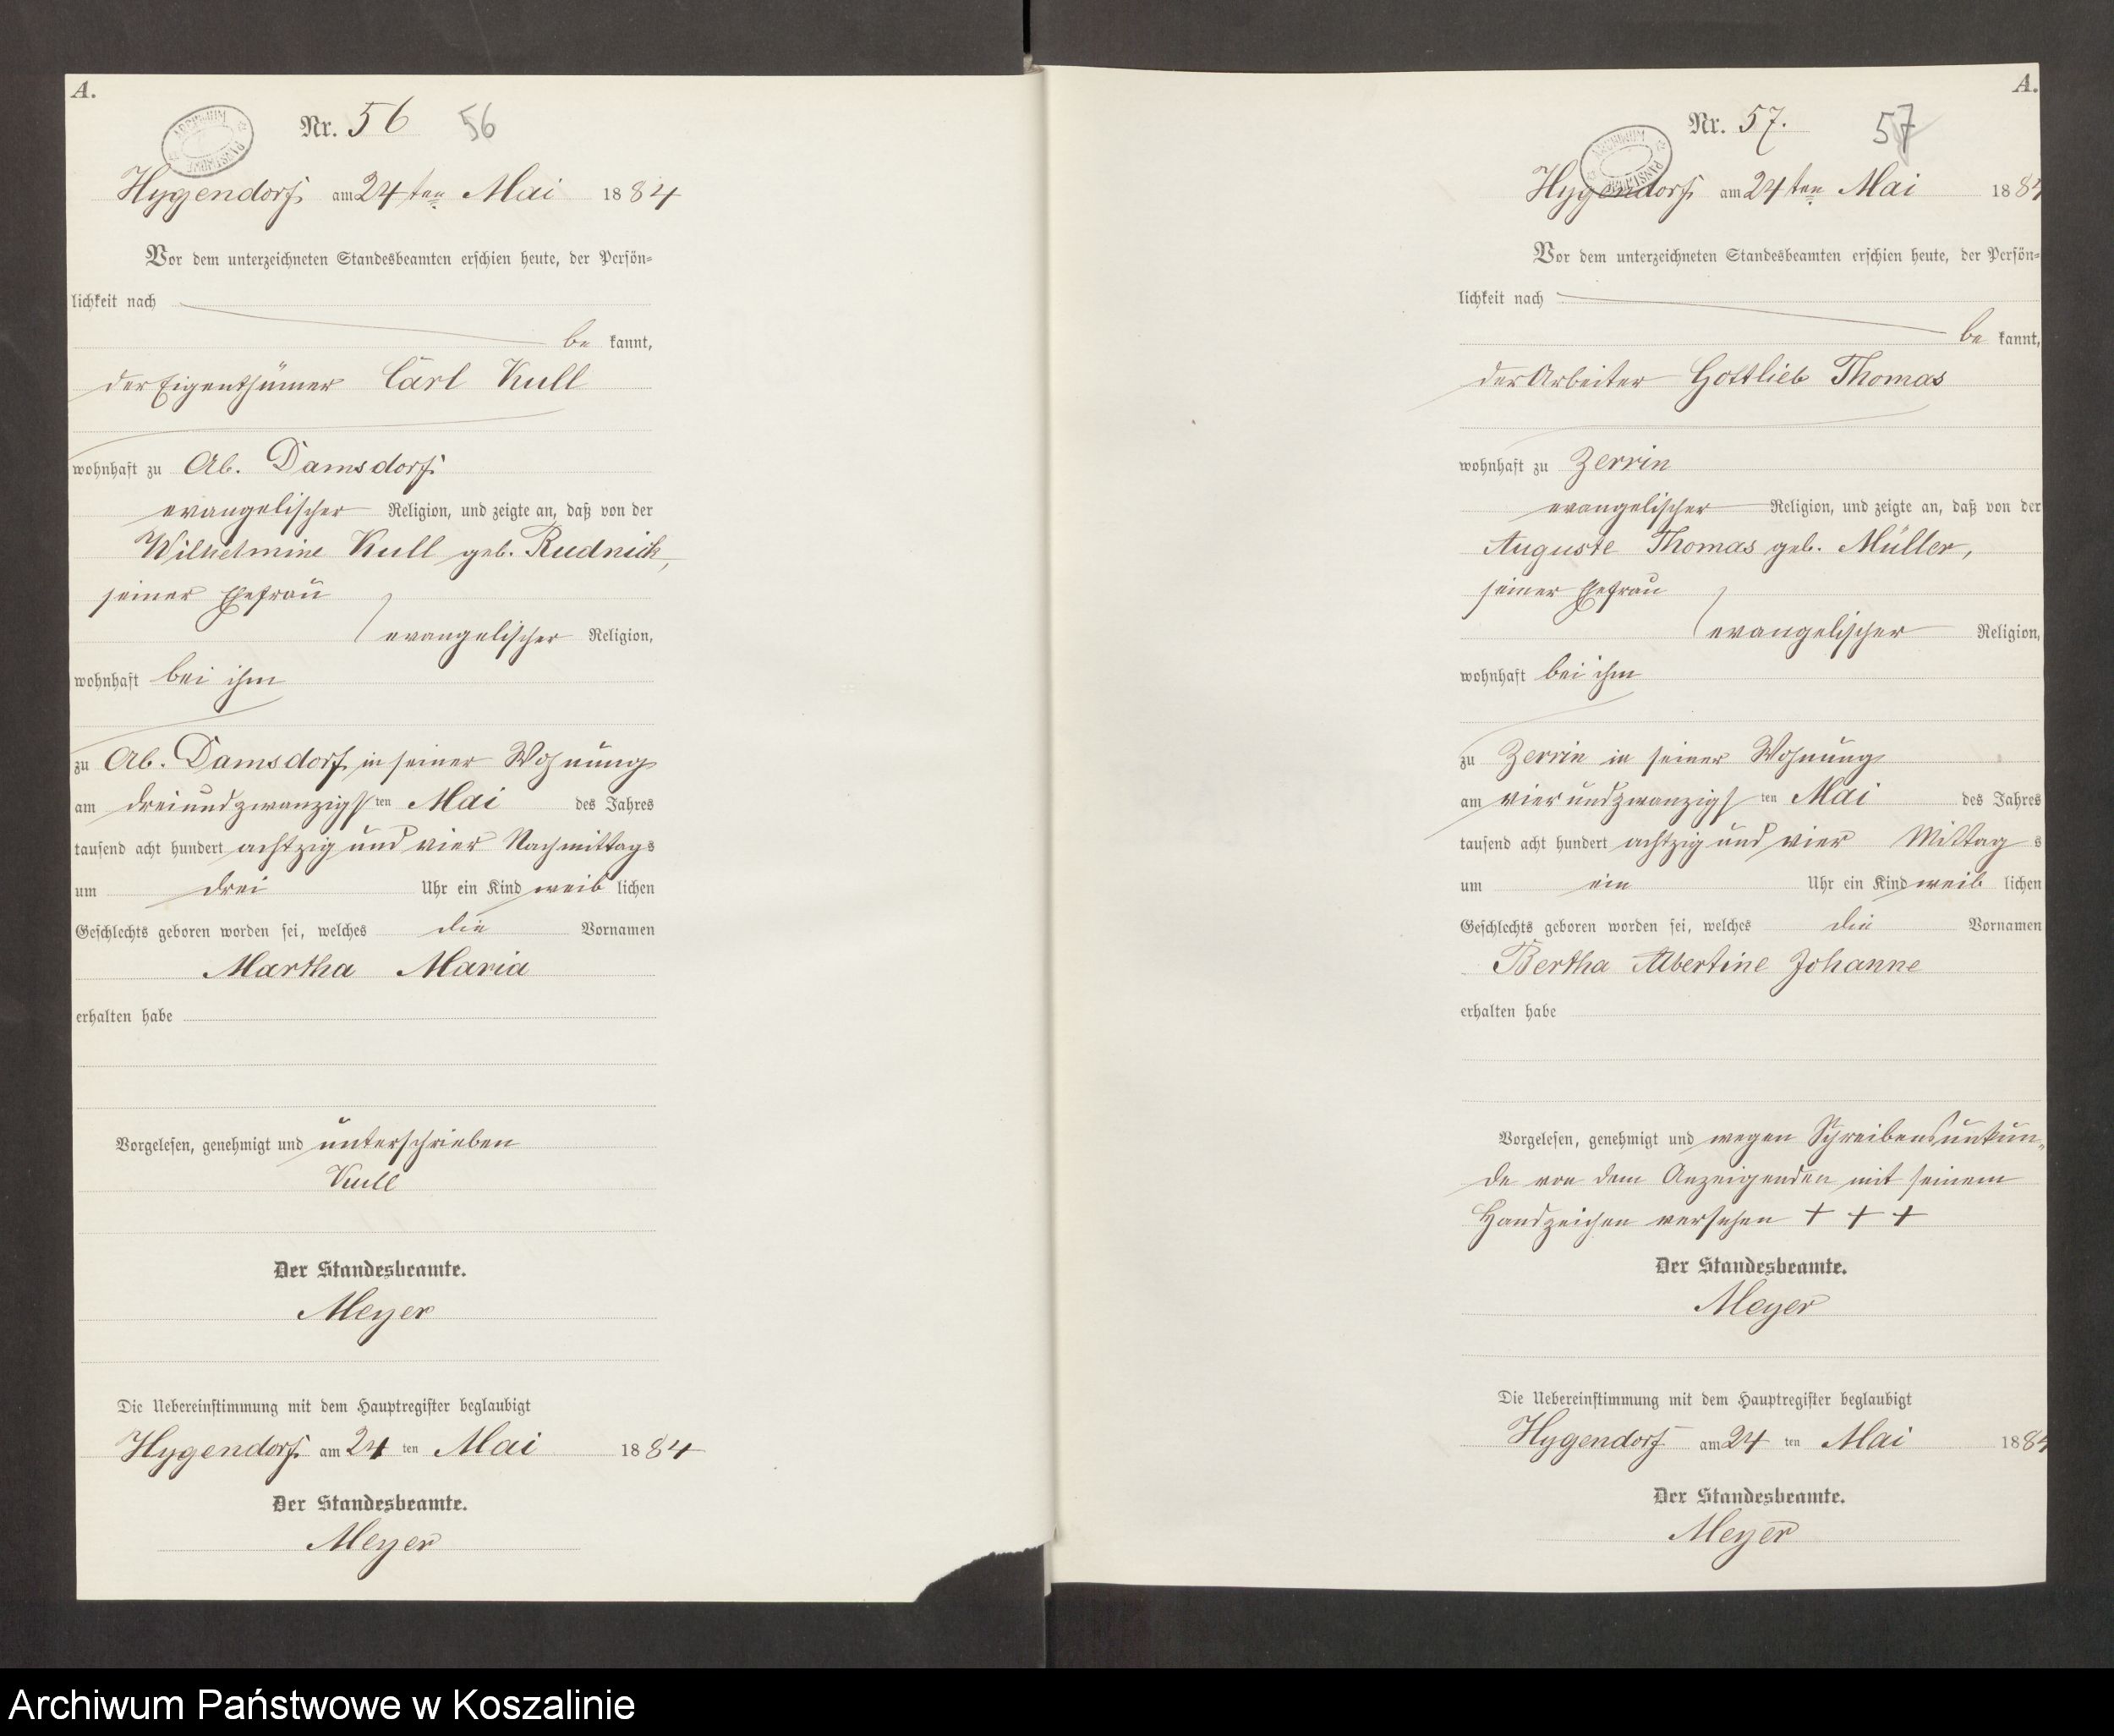 A.
Nr. 56 56
Hygendorf am 24ten Mai 1884
Vor dem unterzeichneten Standesbeamten erschien heute, der Persön=
lichkeit nach
be kannt,
der Eigenthümer Carl Kull
wohnhaft zu Ab. Damsdorf
evangelischer Religion, und zeigte an, daß von der
Wilhelmine Kull geb. Rudnick,
seiner Ehefrau
evangelischer Religion,
wohnhaft bei ihm
zu Ab. Damsdorf in seiner Wohnung
am dreiundzwanzigsten Mai des Jahres
tausend acht hundert achtzig und vier Nachmittags
um drei Uhr ein Kind weib lichen
Geschlechts geboren worden sei, welches die Vornamen
Martha Maria
erhalten habe
Vorgelesen, genehmigt und unterschrieben
Kull
Der Standesbeamte.
Meyer
Die Uebereinstimmung mit dem Hauptregister beglaubigt
Hygendorf am 24 ten Mai 1884
Der Standesbeamte.
Meyer
A.
Nr. 57. 57
Hygendorf am 24ten Mai 1884
Vor dem unterzeichneten Standesbeamten erschien heute, der Persön=
lichkeit nach
be kannt,
der Arbeiter Gottlieb Thomas
wohnhaft zu Zerrin
evangelischer Religion, und zeigte an, daß von der
Auguste Thomas geb. Müller,
seiner Ehefrau
evangelischer Religion,
wohnhaft bei ihm
zu Zerrin in seiner Wohnung
am vierundzwanzigsten Mai des Jahres
tausend acht hundert achtzig und vier Mittag s
um ein Uhr ein Kind weib lichen
Geschlechts geboren worden sei, welches die Vornamen
Bertha Albertine Johanne
erhalten habe
Vorgelesen, genehmigt und wegen Schreibensunkun=
de von dem Anzeigenden mit seinem
Handzeichen versehen + + +
Der Standesbeamte.
Meyer
Die Uebereinstimmung mit dem Hauptregister beglaubigt
Hygendorf am 24 ten Mai 1884
Der Standesbeamte.
Meyer
Archiwum Państwowe w Koszalinie